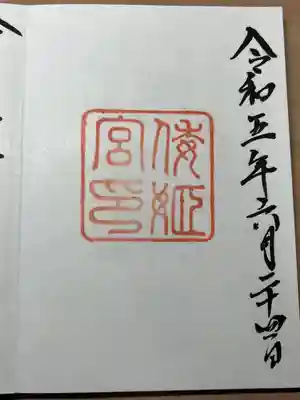 令和五年六月二十四日
倭姫
宮印